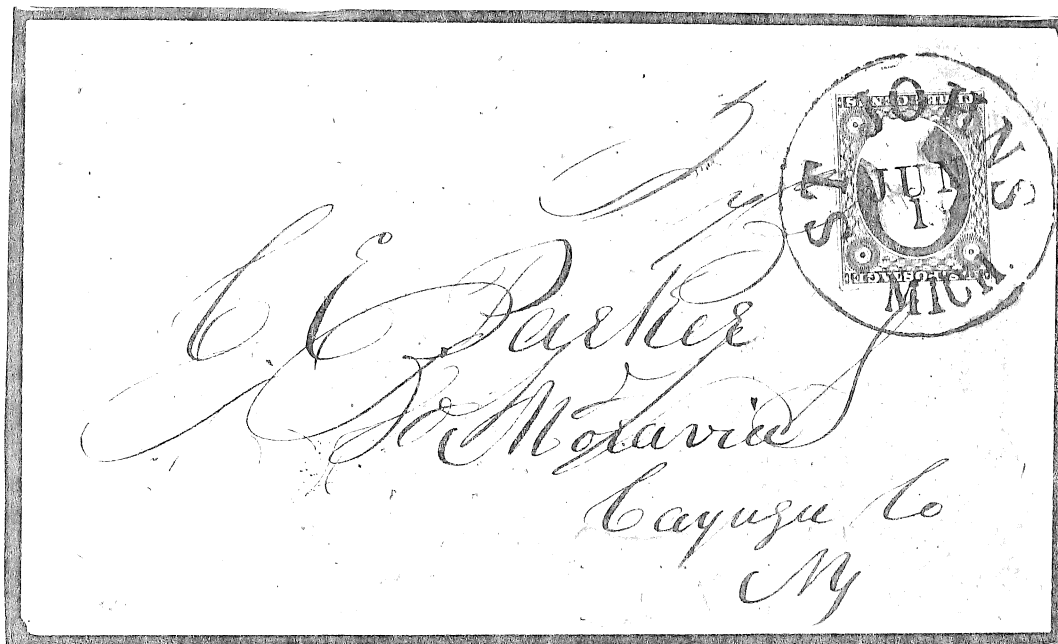 ST JOHNS
JUN
1
MICH.
C. E. Parker
So Moravia
Cayuga Co
Ny